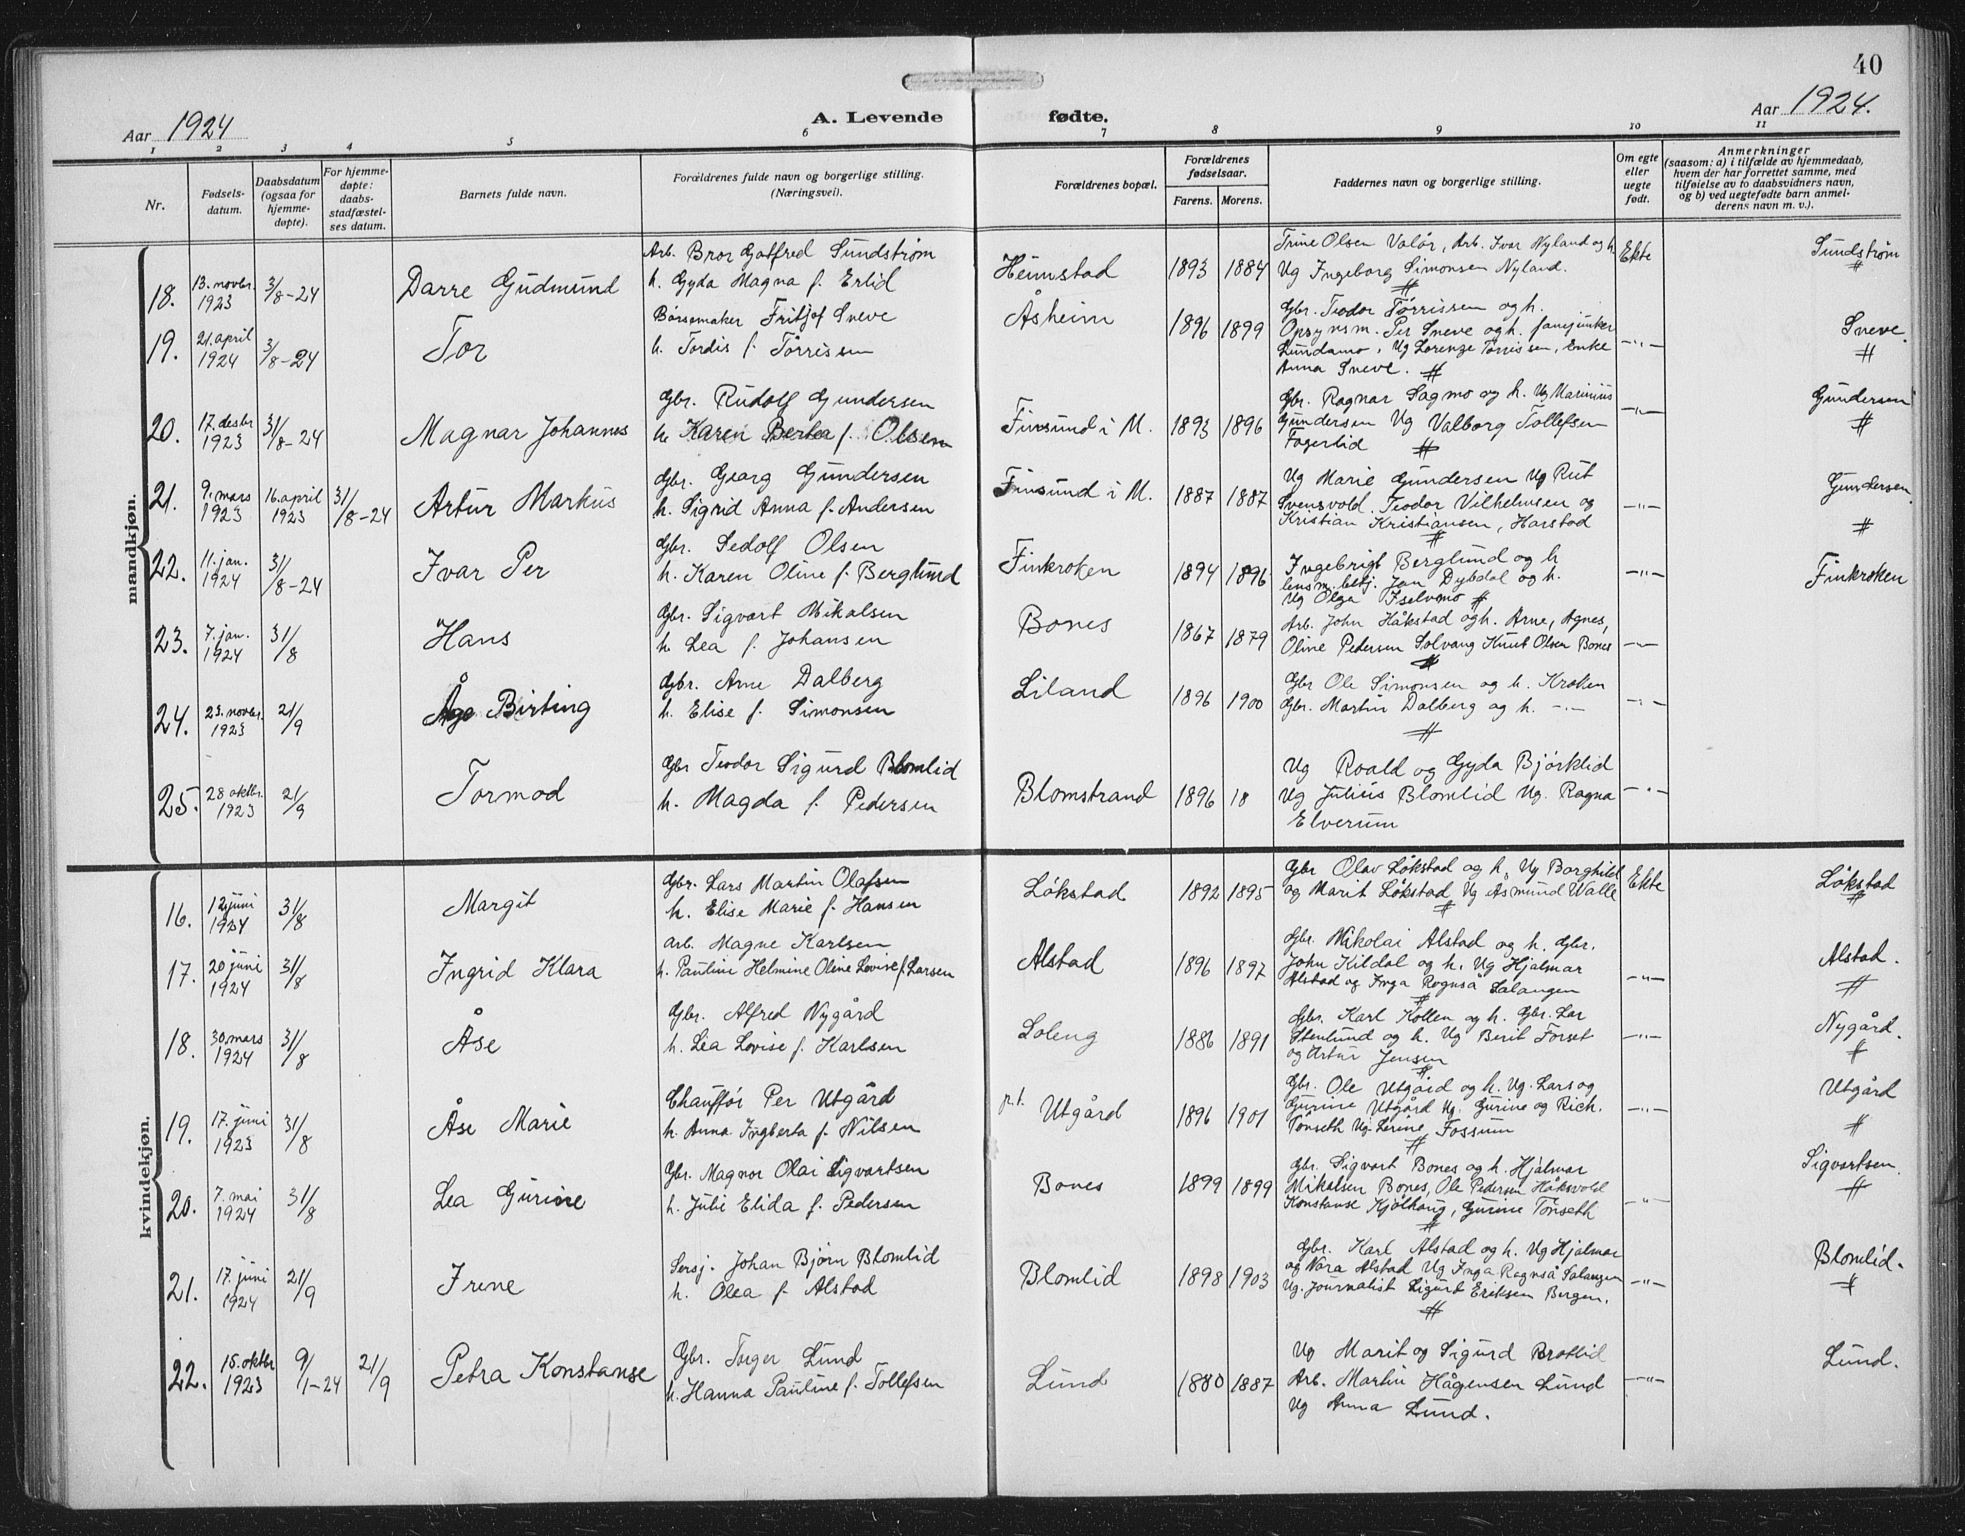 40
Aar 1924
A. Levende fødte.
Aar 1924.
1 2 3 4 5 6 7 8 9 10 11
Nr.
Fødsels-
datum.
Daabsdatum
(ogsaa for
hjemme-
døpte).
For hjemme-
døpte:
daabs-
stadfæstel-
ses datum.
Barnets fulde navn.
Forældrenes fulde navn og borgerlige stilling.
(Næringsvei).
Forældrenes bopæl.
Forældrenes
fødselsaar.
Farens. Morens.
Faddernes navn og borgerlige stilling.
Om egte
eller
uegte
født.
Anmerkninger
(saasom: a) i tilfælde av hjemmedaab,
hvem der har forrettet samme, med
tilføielse av to daabsvidners navn,
og b) ved uegtefødte barn anmel-
derens navn m. v.).
mandkjøn.
18. 13. novbr. 1923 3/8-24 Darre Gudmund
Arb. Bror Gotfred Sundstrøm
h. Gyda Magna f. Erlid
Heimstad 1893 1884
Trine Olsen Valör, Arb. Ivar Nyland og h.
Ug Ingeborg Simonsen Nyland.
Ekte Sundstrøm
19. 21. april 1924 3/8-24 Tor
Børsemaker Fritjof Sneve
h. Tordis f. Tørrissen
Åsheim 1896 1899
Gbr. Teodor Tørrissen og h.
Opsynsm. Per Sneve og h. fanejunker
Lundamo, Ug Lorenze Tørrissen, enke
Anna Sneve.
-"- Sneve.
20. 17. desbr 1923 31/8-24 Magnar Johannes
Gbr. Rudolf Gundersen
h. Karen Bertea f. Olsen
Finsund i M. 1893 1896
Gbr. Ragnar Sagmo og h. Ug Marinius
Gundersen Ug Valborg Tollefsen
Fagerlid
-"- Gundersen
21. 9. mars 1923 16. april 1923 31/8-24 Artur Markus
Gbr. Georg Gundersen
h. Sigrid Anna f. Andersen
Finsund i M. 1887 1887
Ug Marie Gundersen Ug Rut
Svensvold. Teodor Vilhelmsen og
Kristian Kristiansen, Harstad
-"- Gundersen.
22. 11. jan. 1924 31/8-24 Ivar Per
Gbr. Sedolf Olsen
h. Karen Oline f. Berglund
Finkroken 1894 1896
Ingebrigt Berglund og h
lensm. betj. Jan Dybdal og h.
Ug Olga Iselvmo
-"- Finkroken
23. 7. jan. 1924 31/8 Hans
Gbr. Sigvart Mikalsen
h. Lea f. Johansen
Bones 1867 1879
Arb. John Håkstad og h. Arne, Agnes,
Oline Pedersen Solvang Knut Olsen Bones
-"-
24. 23. novbr. 1923 21/9 Åge Birting
Gbr. Arne Dalberg
h. Elise f. Simonsen
Liland 1896 1900
Gbr Ole Simonsen og h. Kroken
Gbr. Martin Dalberg og h. -"-
-"-
25. 28 oktbr. 1923 21/9 Tormod
Gbr Teodor Sigurd Blomlid
h. Magda f. Pedersen
Blomstrand 1896 18
Ug Roald og Gyda Bjørklid
Ug Julius Blomlid Ug. Ragna
Elverum
-"-
kvindekjøn.
16. 12 juni 1924 31/8 Margit
Gbr. Lars Martin Olafsen
h. Elise Marie f. Hansen
Løkstad 1892 1895
Gbr Olav Løkstad og h, Ug Borghild
og Marit Løkstad Ug Asmund Walle
Ekte Løkstad
17. 20 juni 1924 31/8 Ingrid Klara
Arb. Magne Karlsen
h. Pauline Helmine Oline Lovise f. Larsen
Alstad 1896 1897
Gbr. Nikolai Alstad og h. Gbr.
John Kildal og h. Ug Hjalmar
Alstad og Inga Ragnså Salangen
-"- Alstad.
18. 30. mars 1924 31/8 Åse
Gbr. Alfred Nygård
h. Lea Lovise f. Karlsen
Soleng 1886 1891
Gbr. Karl Kollen og h. Gbr. Lar
Stenlund og h. Ug Berit Forset
og Artur Jensen
-"- Nygård.
19. 17. juni 1923 31/8 Åse Marie
Chauffør Per Utgård
h. Anna Ingberta f. Nilsen
p.t. Utgård 1896 1901
Gbr. Ole Utgård og h. Ug. Lars og
Gurine Utgård Ug. Gurine og Rich.
Tønseth Ug. Lerine Fossum
-"- Utgård
20. 7. mai 1924 31/8 Lea Gurine
Gbr. Magnor Olai Sigvartsen
h. Julie Elida f. Pedersen
Bones 1899 1899
Gbr. Sigvart Bones og h. Hjalmar
Mikalsen Bones, Ole Pedersen Håksvold
Konstanse Kjølhaug, Gurine Tønseth
-"- Sigvartsen.
21. 17. juni 1924 21/9 Irene
Sersj. Johan Bjørn Blomlid
h. Olea f. Alstad
Blomlid 1898 1903
Gbr. Karl Alstad og h. Ug Hjalmar
og Nora Alstad Ug Inga Ragnså Salangen
Ug. Journalist Sigurd Eriksen Bergen.
-"- Blomlid.
22. 15. oktbr 1923 9/1-24 21/9 Petra Konstanse
Gbr. Torger Lund
h. Hanna Pauline f. Tollefsen
Lund 1880 1887
Ug Marit og Sigurd Brattlid
Arb. Martin Hågensen Lund
Ug Anna Lund.
-"- Lund.